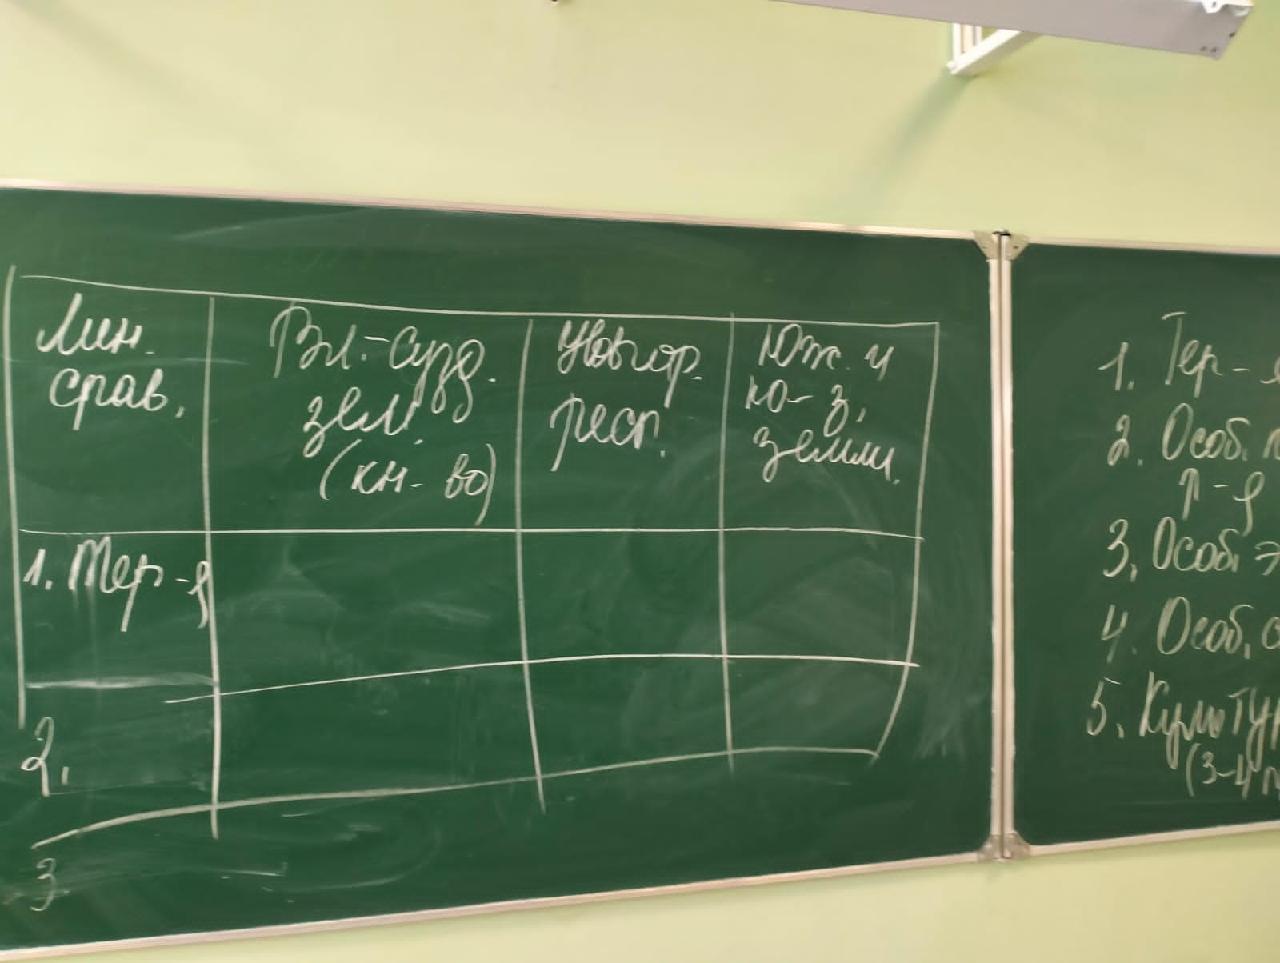 Лин.
срав.
Вл.-Сузд.
зем.
(кн-во)
Новгор.
респ.
Юж. и
ю-з.
земли.
1. Тер-я
2.
3
1. Тер-я
2. Особ. п
р-я
3. Особ. э
4. Особ. с
5. Культур
(3-4 п